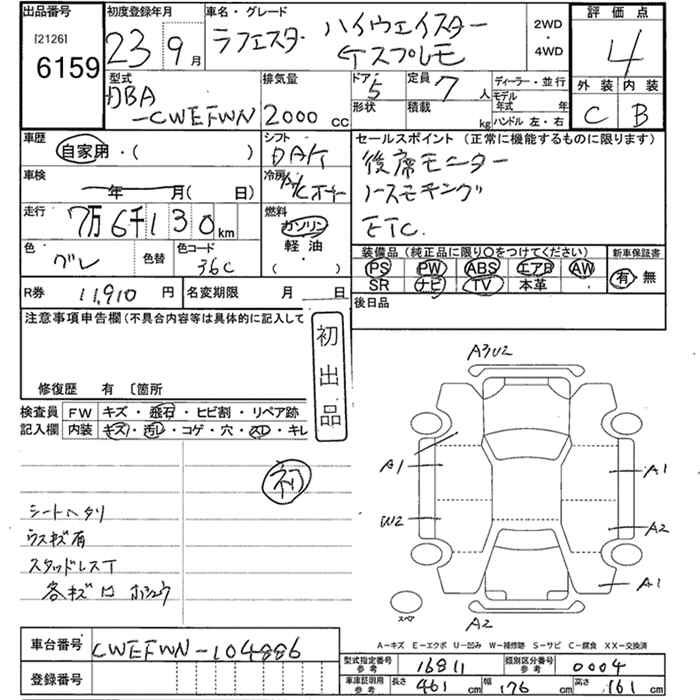 出品番号 初度登録年月 車名・グレード 評価点
[2126] 6159
23 9月
ラフェスタ ハイウェイスター
2WD・4WD
4
外装 内装
C B
型式 DBA
-CWEFWN
排気量
2000 cc
ドア 5 定員 7 人
形状 積載 kg
ディーラー・並行
モデル年式 年
ハンドル 左・右
車歴 自家用・( )
シフト DAT
セールスポイント (正常に機能するものに限ります)
後席モニター
ETC
車検 年 月( 日)
冷房 A/C オート
走行 7万6千130km
燃料 ガソリン
軽油
( )
色 グレ 色替 色コード 36C
装備品(純正品に限り○をつけてください) 新車保証書
PS PW ABS エアB AW 有・無
SR ナビ TV 本革
R券 11,910 円 名変期限 月 日
後日品
注意事項申告欄(不具合内容等は具体的に記入して
初出品
修復歴 有 〔箇所
検査員記入欄 FW キズ・飛石・ヒビ割・リペア跡
内装 キズ・汚レ・コゲ・穴・スレ・キレ
初
シートヘタリ
ウスキズ有
スタッドレスT
各キズ
A3U2
A1 A1
W2 A2
A1
スペア
A2
A－キズ E－エクボ U－凹み W－補修跡 S－サビ C－腐食 XX－交換済
車台番号 CWEFWN-104886
登録番号
型式指定番号 参考 16811 類別区分番号 参考 0004
車庫証明用 参考 長さ 461 cm 幅 176 cm 高さ 161 cm